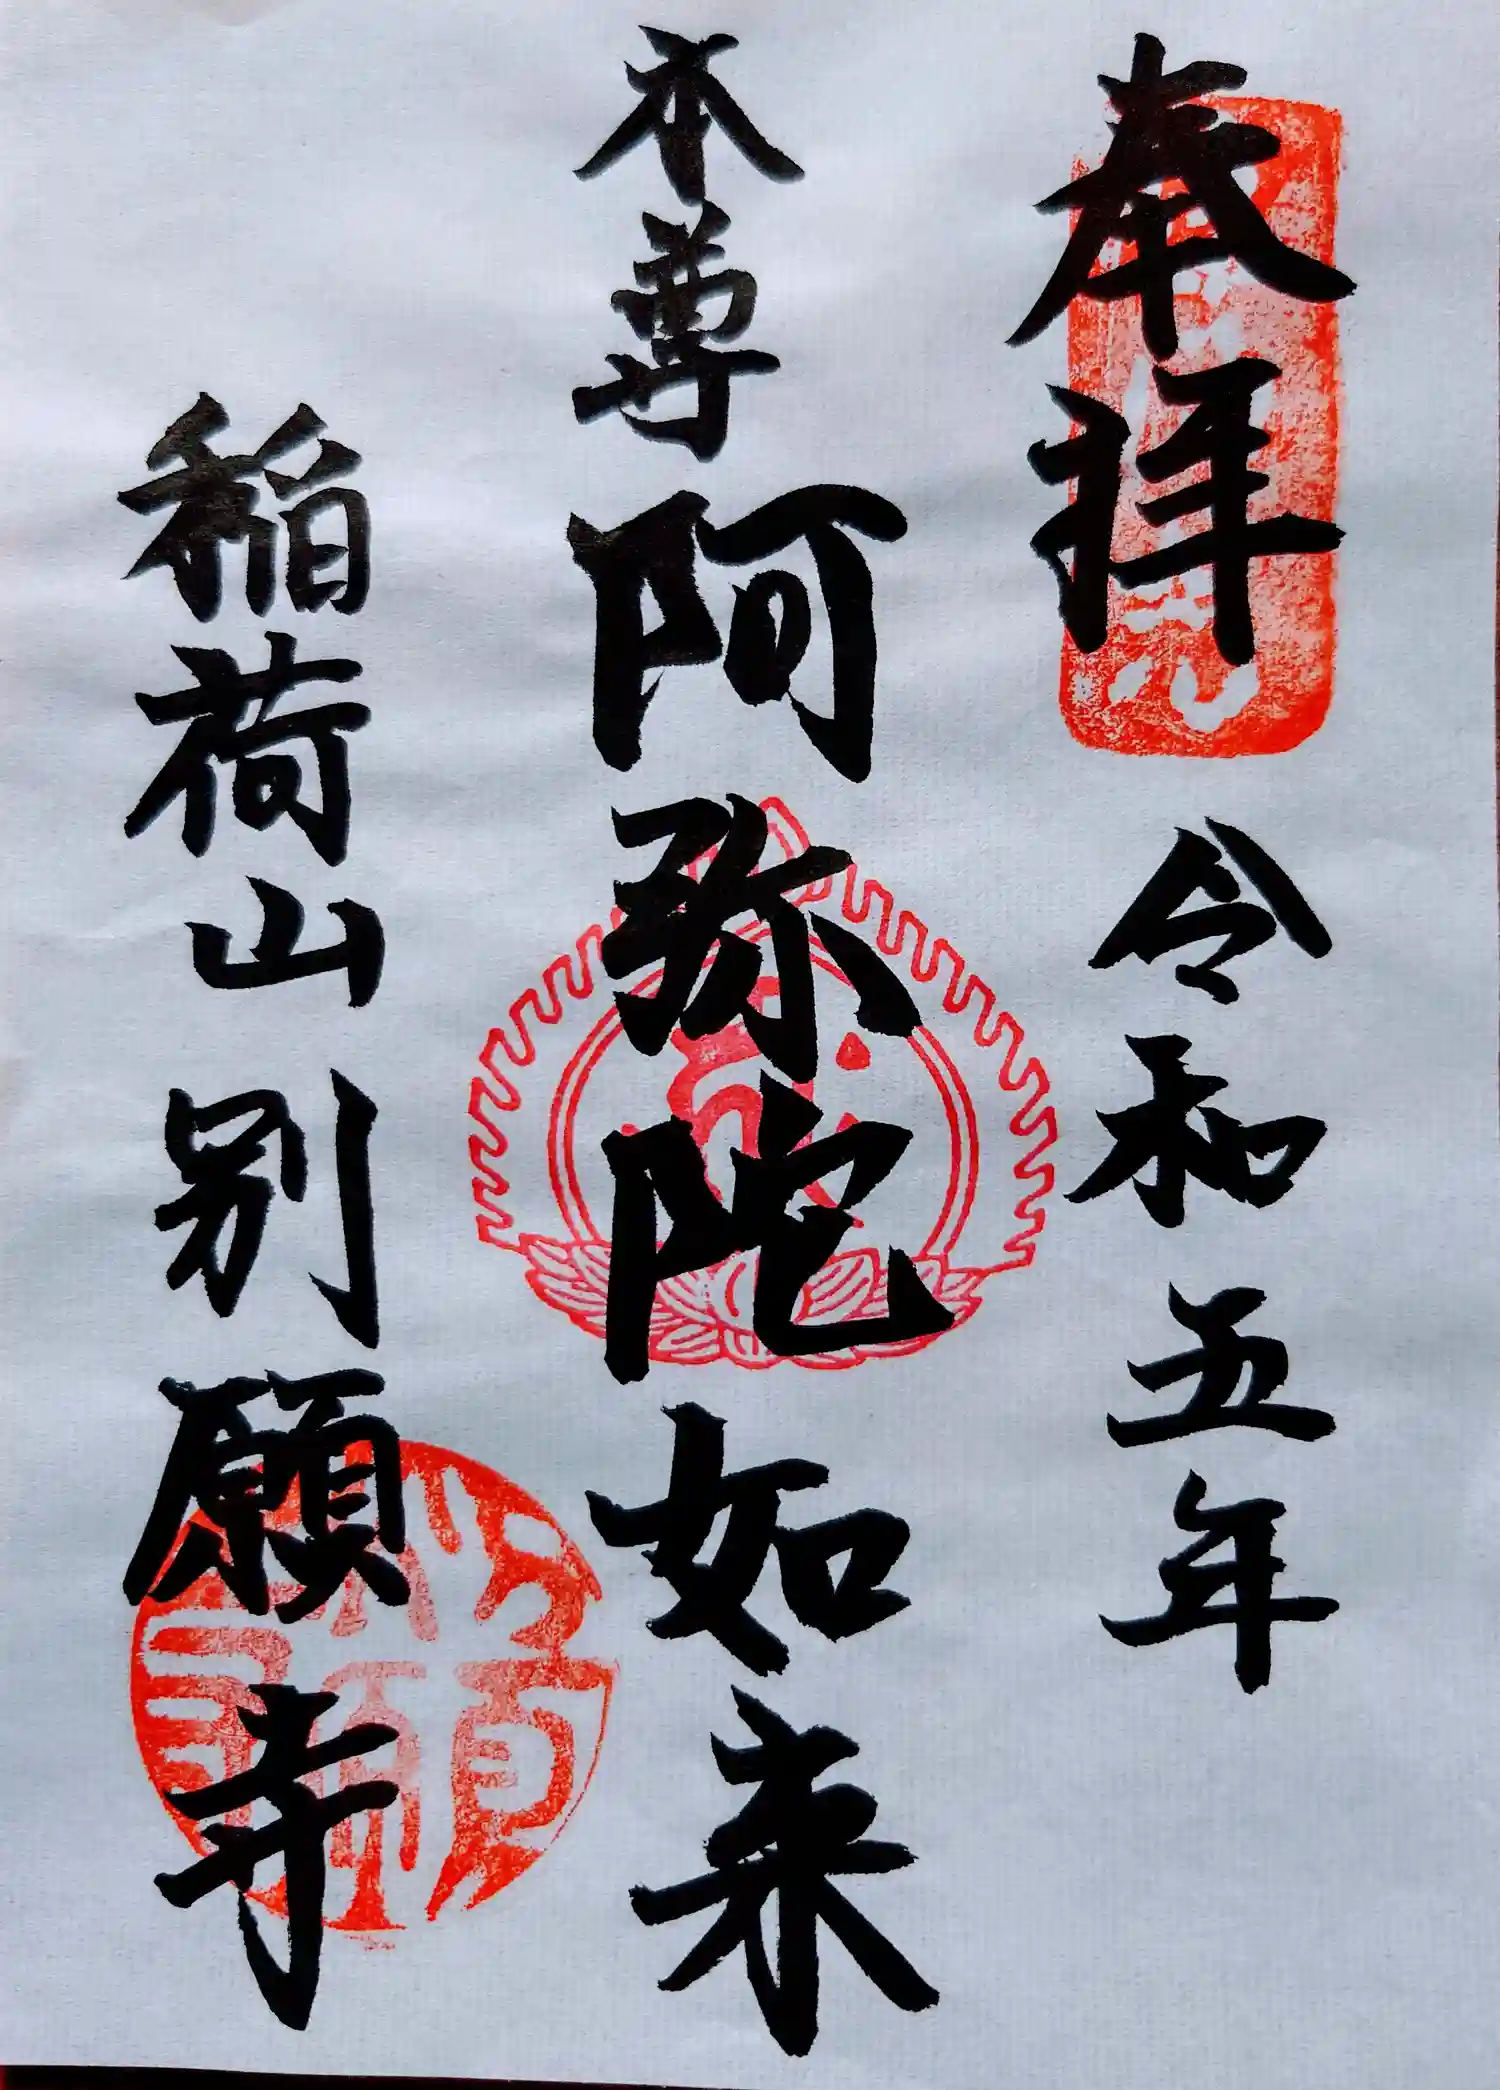 奉拝 令和五年
本尊 阿弥陀如来
稲荷山 別願寺